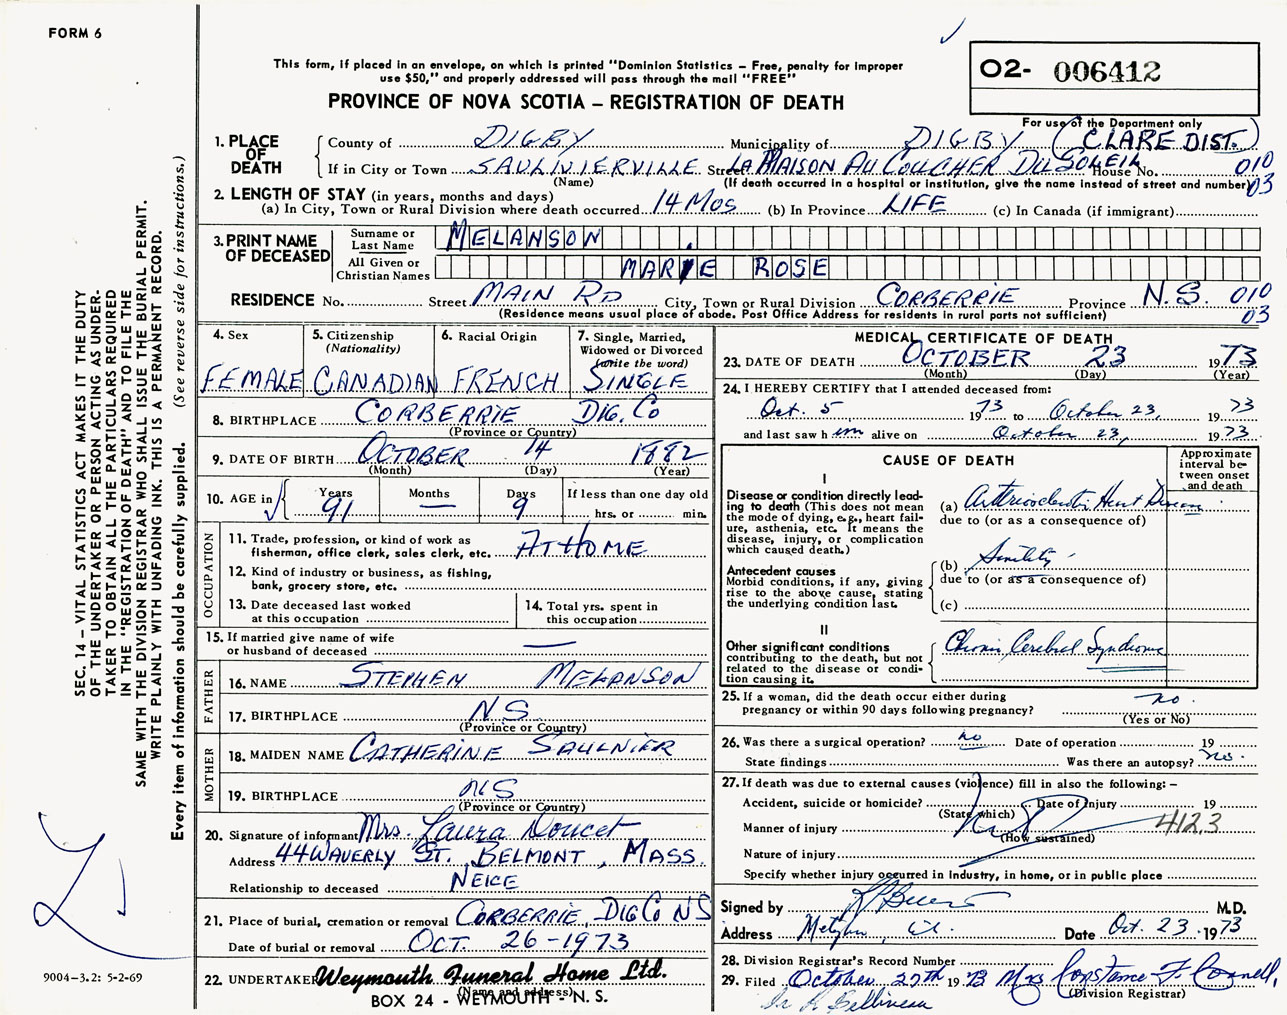 FORM 6
This form, if placed in an envelope, on which is printed "Dominion Statistics – Free, penalty for improper
use $50," and properly addressed will pass through the mail "FREE"
PROVINCE OF NOVA SCOTIA – REGISTRATION OF DEATH
O2- 006412
For use of the Department only
1. PLACE OF DEATH
County of DIGBY Municipality of DIGBY (CLARE DIST.)
If in City or Town SAULNIERVILLE Street LA MAISON AU COUCHER DU SOLEIL House No. 010
(Name) (If death occurred in a hospital or institution, give the name instead of street and number) 03
2. LENGTH OF STAY (in years, months and days)
(a) In City, Town or Rural Division where death occurred 14 MOS (b) In Province LIFE (c) In Canada (if immigrant)
3. PRINT NAME OF DECEASED
Surname or Last Name MELANSON
All Given or Christian Names MARIE ROSE
RESIDENCE No. Street MAIN RD City, Town or Rural Division CORBERRIE Province N.S. 010
(Residence means usual place of abode. Post Office Address for residents in rural parts not sufficient) 03
4. Sex FEMALE
5. Citizenship (Nationality) CANADIAN
6. Racial Origin FRENCH
7. Single, Married, Widowed or Divorced (write the word) SINGLE
8. BIRTHPLACE CORBERRIE DIG. CO
(Province or Country)
9. DATE OF BIRTH OCTOBER 14 1882
(Month) (Day) (Year)
10. AGE in Years 91 Months — Days 9 If less than one day old hrs. or min.
OCCUPATION
11. Trade, profession, or kind of work as fisherman, office clerk, sales clerk, etc. AT HOME
12. Kind of industry or business, as fishing, bank, grocery store, etc.
13. Date deceased last worked at this occupation
14. Total yrs. spent in this occupation
15. If married give name of wife or husband of deceased —
FATHER
16. NAME STEPHEN MELANSON
17. BIRTHPLACE NS
(Province or Country)
MOTHER
18. MAIDEN NAME CATHERINE SAULNIER
19. BIRTHPLACE NS
(Province or Country)
20. Signature of informant Mrs. Laura Doucet
Address 44 WAVERLY ST. BELMONT, MASS
Relationship to deceased NEICE
21. Place of burial, cremation or removal CORBERRIE, DIG CO NS
Date of burial or removal OCT. 26-1973
22. UNDERTAKER Weymouth Funeral Home Ltd.
(Name and address)
BOX 24 - WEYMOUTH - N. S.
MEDICAL CERTIFICATE OF DEATH
23. DATE OF DEATH OCTOBER 23 1973
(Month) (Day) (Year)
24. I HEREBY CERTIFY that I attended deceased from:
Oct. 5 1973 to October 23, 1973
and last saw h em alive on October 23, 1973
CAUSE OF DEATH
Approximate interval between onset and death
I
Disease or condition directly leading to death (This does not mean the mode of dying, e.g., heart failure, asthenia, etc. It means the disease, injury, or complication which caused death.)
(a) Arteriosclerotic Heart Disease
due to (or as a consequence of)
Antecedent causes
Morbid conditions, if any, giving rise to the above cause, stating the underlying condition last.
(b) Senility
due to (or as a consequence of)
(c)
II
Other significant conditions contributing to the death, but not related to the disease or condition causing it.
Chronic Cerebral Syndrome
25. If a woman, did the death occur either during pregnancy or within 90 days following pregnancy? no
(Yes or No)
26. Was there a surgical operation? no Date of operation 19
State findings Was there an autopsy? no.
27. If death was due to external causes (violence) fill in also the following: –
Accident, suicide or homicide? Date of Injury 19
(State which)
Manner of injury 412.3
(How sustained)
Nature of injury
Specify whether injury occurred in industry, in home, or in public place
Signed by M.D.
Address Date Oct. 23 1973
28. Division Registrar's Record Number
29. Filed October 27th 1973 Mrs Constance F. Connell,
(Division Registrar)
Belliveau
SEC. 14 – VITAL STATISTICS ACT MAKES IT THE DUTY
OF THE UNDERTAKER OR PERSON ACTING AS UNDER-
TAKER TO OBTAIN ALL THE PARTICULARS REQUIRED
IN THE "REGISTRATION OF DEATH" AND TO FILE THE
SAME WITH THE DIVISION REGISTRAR WHO SHALL ISSUE THE BURIAL PERMIT.
WRITE PLAINLY WITH UNFADING INK. THIS IS A PERMANENT RECORD.
Every item of information should be carefully supplied. (See reverse side for instructions.)
9004–3.2: 5-2-69